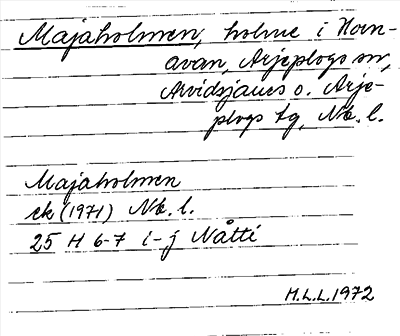 Majaholmen, holme i Horn-
avan, Arjeplogs sn,
Arvidsjaurs o. Arje-
plogs tg, Nb. l.
Majaholmen
ek (1971) Nb. l.
25 H 6-7 i-j Nåtti
H.L.L. 1972